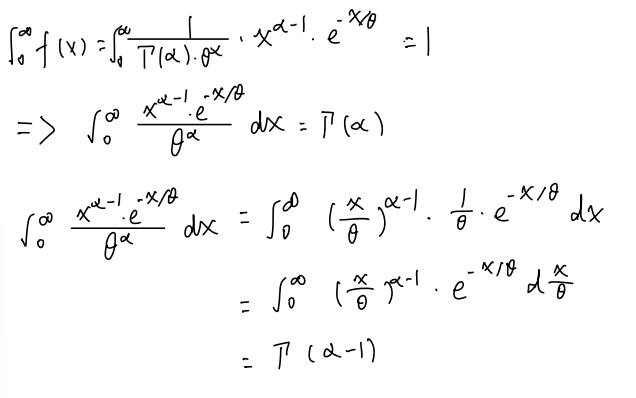 ∫₀^∞ f(x) = ∫₀^∞ 1/(Γ(α)·θ^α) · x^(α-1) · e^(-x/θ) = 1
=> ∫₀^∞ (x^(α-1)·e^(-x/θ))/θ^α dx = Γ(α)
∫₀^∞ (x^(α-1)·e^(-x/θ))/θ^α dx = ∫₀^∞ (x/θ)^(α-1) · 1/θ · e^(-x/θ) dx
= ∫₀^∞ (x/θ)^(α-1) · e^(-x/θ) d x/θ
= Γ(α-1)